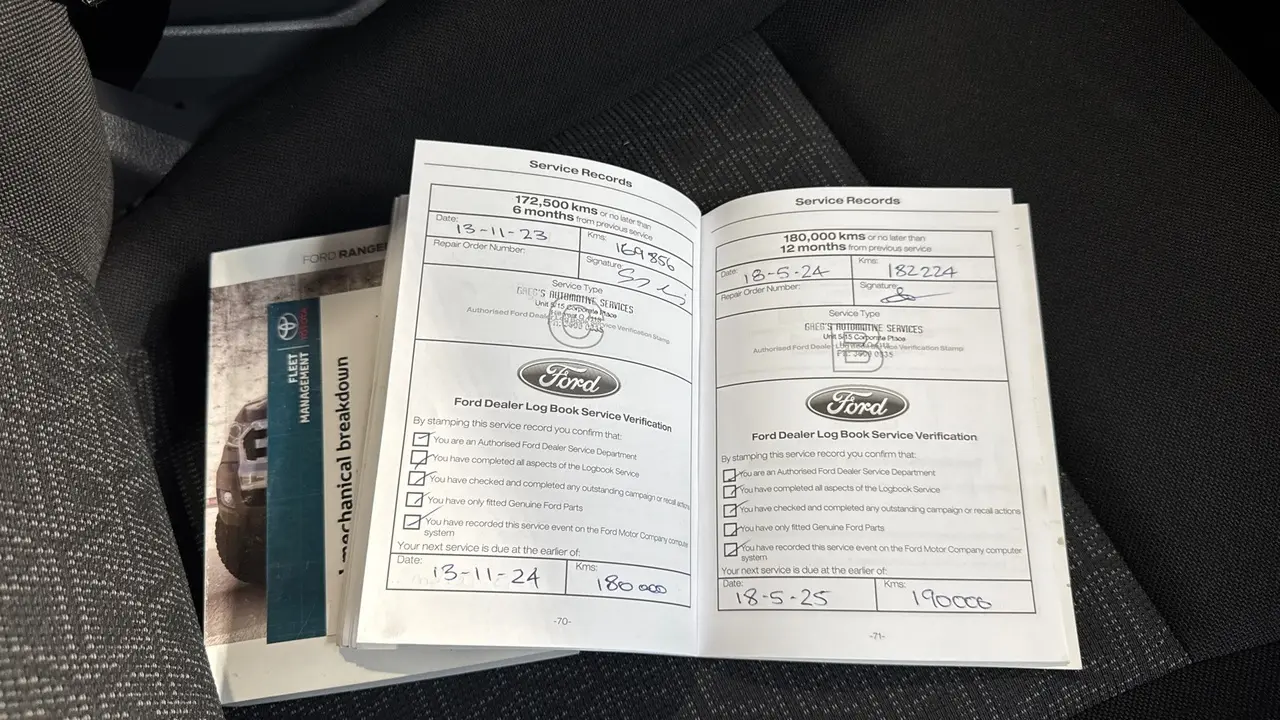 FORD RANGER
TOYOTA
FLEET
MANAGEMENT
mechanical breakdown
Service Records
172,500 kms or no later than
6 months from previous service
Date: 13-11-23
Kms: 169856
Repair Order Number:
Signature:
Service Type
GREG'S AUTOMOTIVE SERVICES
Unit 5/15 Corporate Place
Authorised Ford Dealer Service Verification Stamp
C
Ford
Ford Dealer Log Book Service Verification
By stamping this service record you confirm that:
You are an Authorised Ford Dealer Service Department
You have completed all aspects of the Logbook Service
You have checked and completed any outstanding campaign or recall actions
You have only fitted Genuine Ford Parts
You have recorded this service event on the Ford Motor Company computer
system
Your next service is due at the earlier of:
Date: 13-11-24
Kms: 180000
-70-
Service Records
180,000 kms or no later than
12 months from previous service
Date: 18-5-24
Kms: 182224
Repair Order Number:
Signature:
Service Type
GREG'S AUTOMOTIVE SERVICES
Unit 5/15 Corporate Place
Authorised Ford Dealer Service Verification Stamp
B
Ford
Ford Dealer Log Book Service Verification
By stamping this service record you confirm that:
You are an Authorised Ford Dealer Service Department
You have completed all aspects of the Logbook Service
You have checked and completed any outstanding campaign or recall actions
You have only fitted Genuine Ford Parts
You have recorded this service event on the Ford Motor Company computer
system
Your next service is due at the earlier of:
Date: 18-5-25
Kms: 190000
-71-